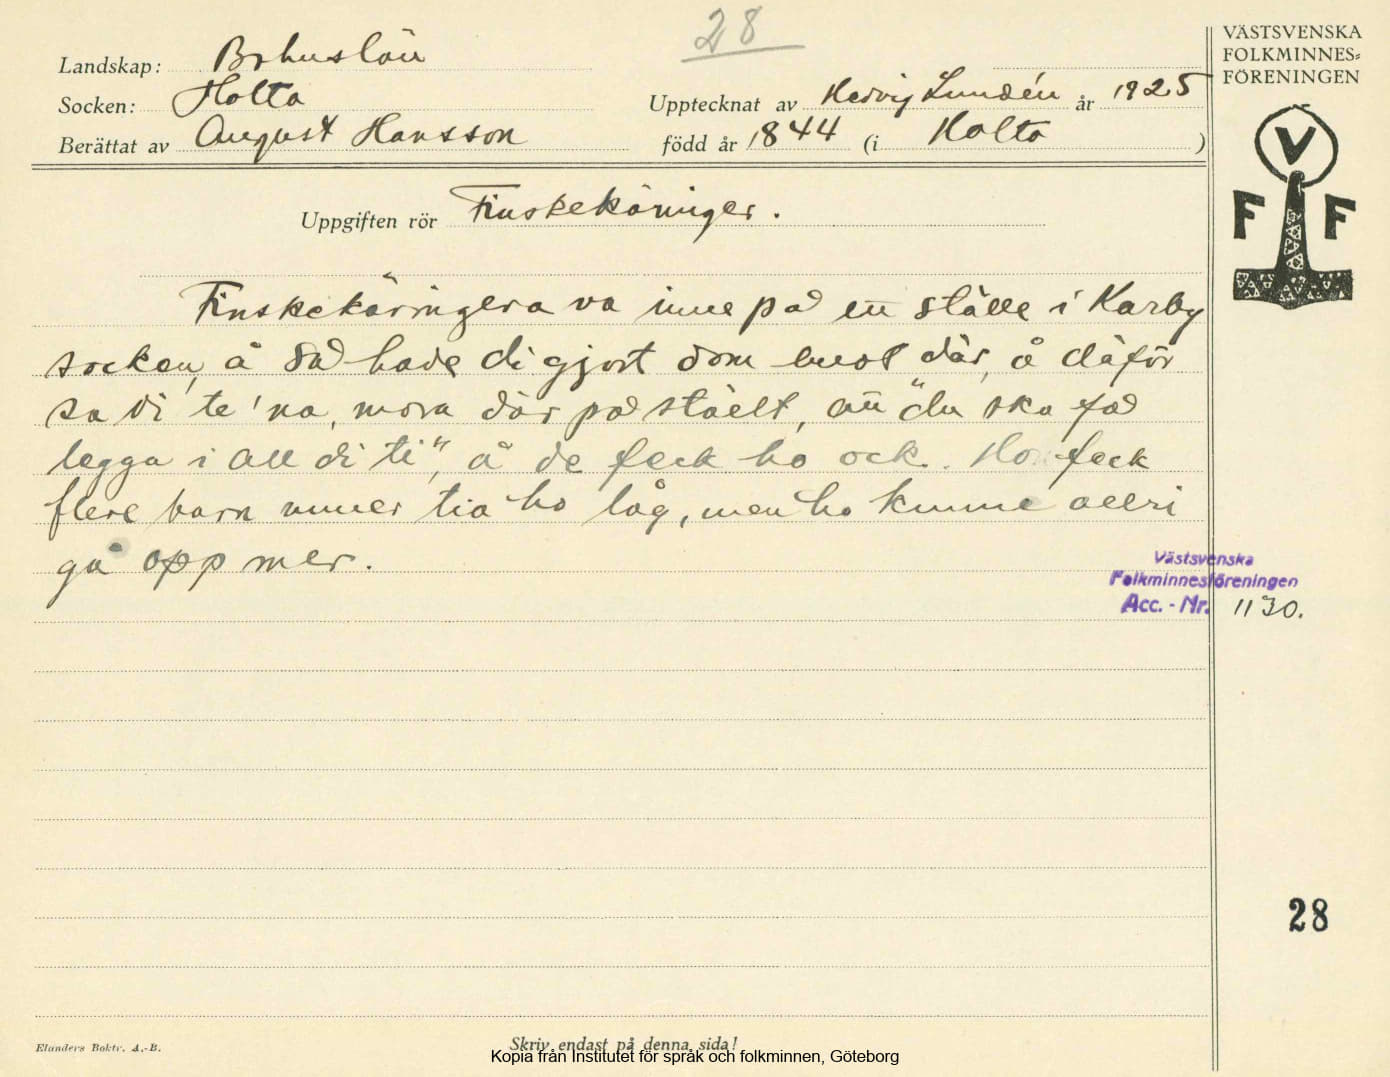 28
VÄSTSVENSKA
FOLKMINNES=
FÖRENINGEN
Landskap: Bohuslän
Socken: Holta
Upptecknat av Hedvig Lundén år 1925
Berättat av August Hansson
född år 1844 (i Holta )
V
F F
Uppgiften rör Finskekäringer.
Finskekäringera va inne på ett ställe i Karby
socken, å så hade di gjort dom emot där, å däför
sa di te 'na, mora där på ställt, att "du ska få
legga i all di ti", å de feck ho ock. Ho feck
flere barn unner tia ho låg, men ho kunne allri
gå opp mer.
Västsvenska
Folkminnesföreningen
Acc. - Nr. 1130.
28
Elanders Boktr. A.-B.
Skriv endast på denna sida!
Kopia från Institutet för språk och folkminnen, Göteborg